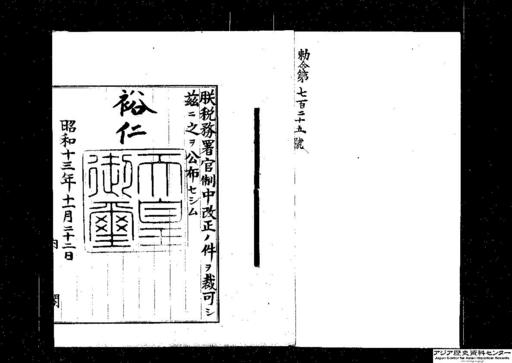 勅令第七百二十五號
朕税務署官制中改正ノ件ヲ裁可シ
茲ニ之ヲ公布セシム
裕仁
天皇御璽
昭和十三年十一月二十二日
内閣
アジア歴史資料センター
Japan Center for Asian Historical Records